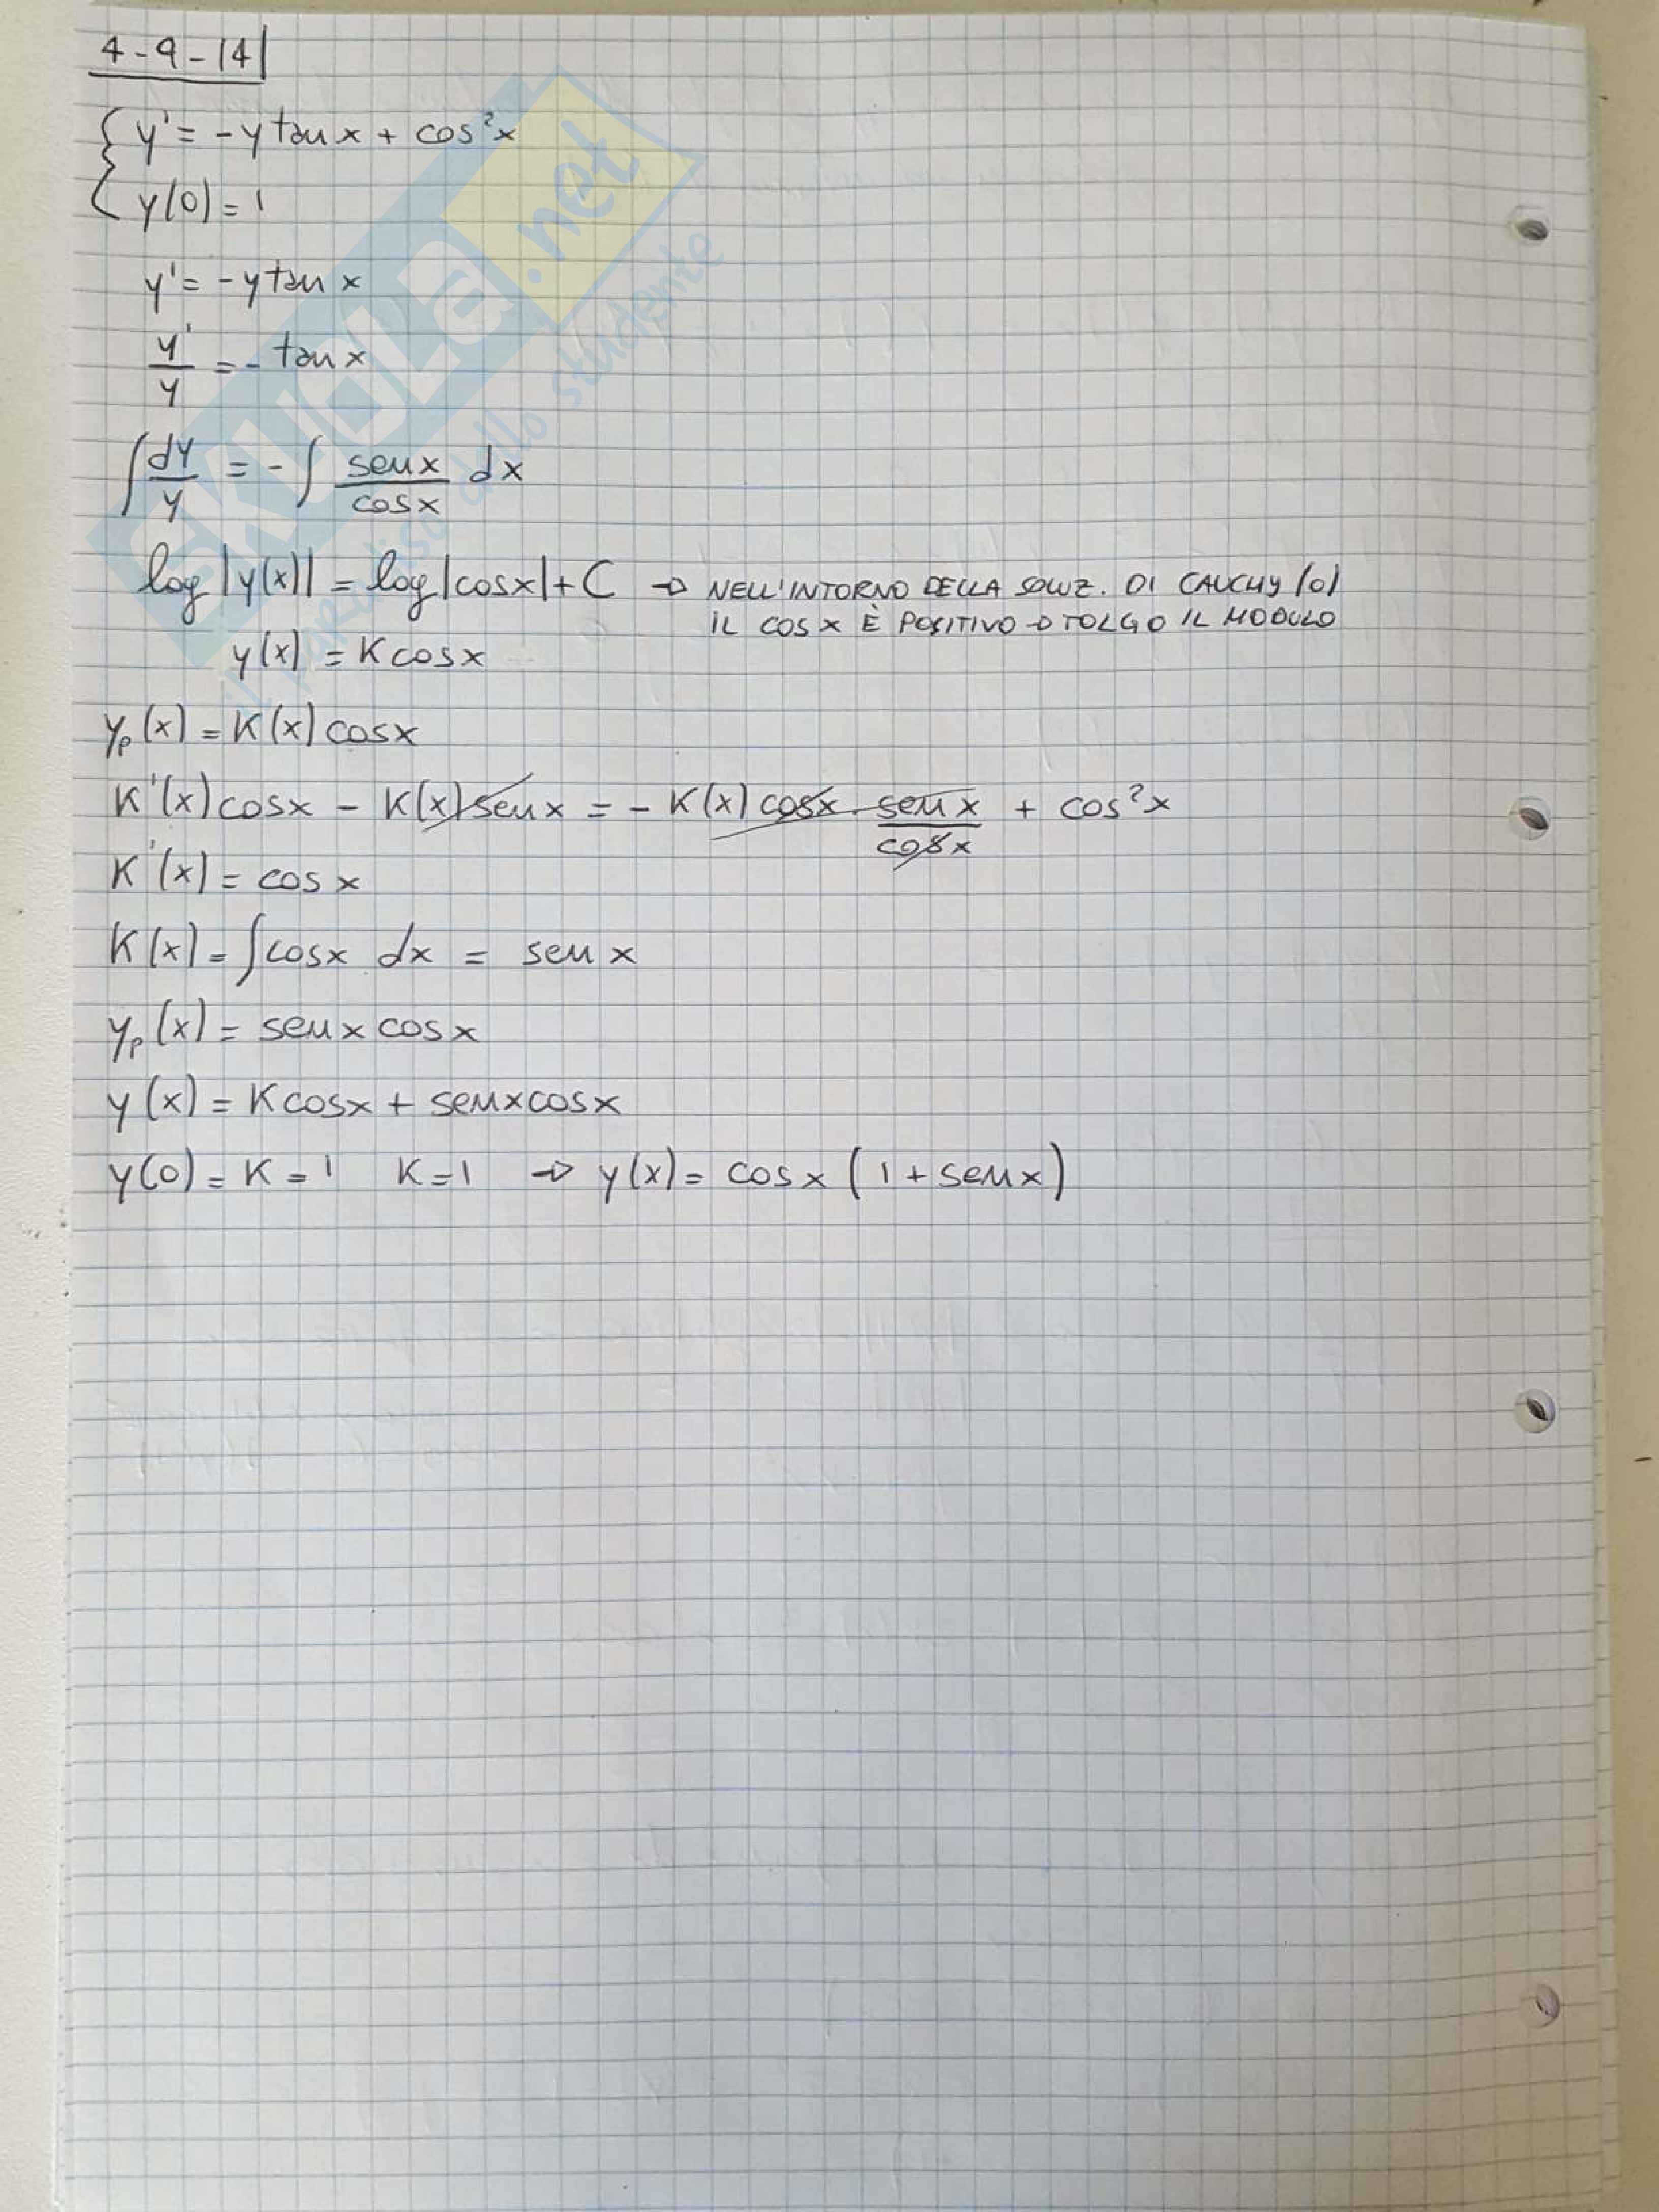 4-9-14
{ y' = -y tan x + cos²x
y(0) = 1
y' = -y tan x
y'/y = - tan x
∫ dy/y = - ∫ sen x / cos x dx
log |y(x)| = log |cos x| + C → NELL'INTORNO DELLA SOLUZ. DI CAUCHY (0)
IL COS X È POSITIVO → TOLGO IL MODULO
y(x) = K cos x
yₚ(x) = K(x) cos x
K'(x) cos x - K(x) sen x = - K(x) cos x · sen x / cos x + cos²x
K'(x) = cos x
K(x) = ∫ cos x dx = sen x
yₚ(x) = sen x cos x
y(x) = K cos x + sen x cos x
y(0) = K = 1 K = 1 → y(x) = cos x (1 + sen x)
SKUOLA.net
il paradiso dello studente